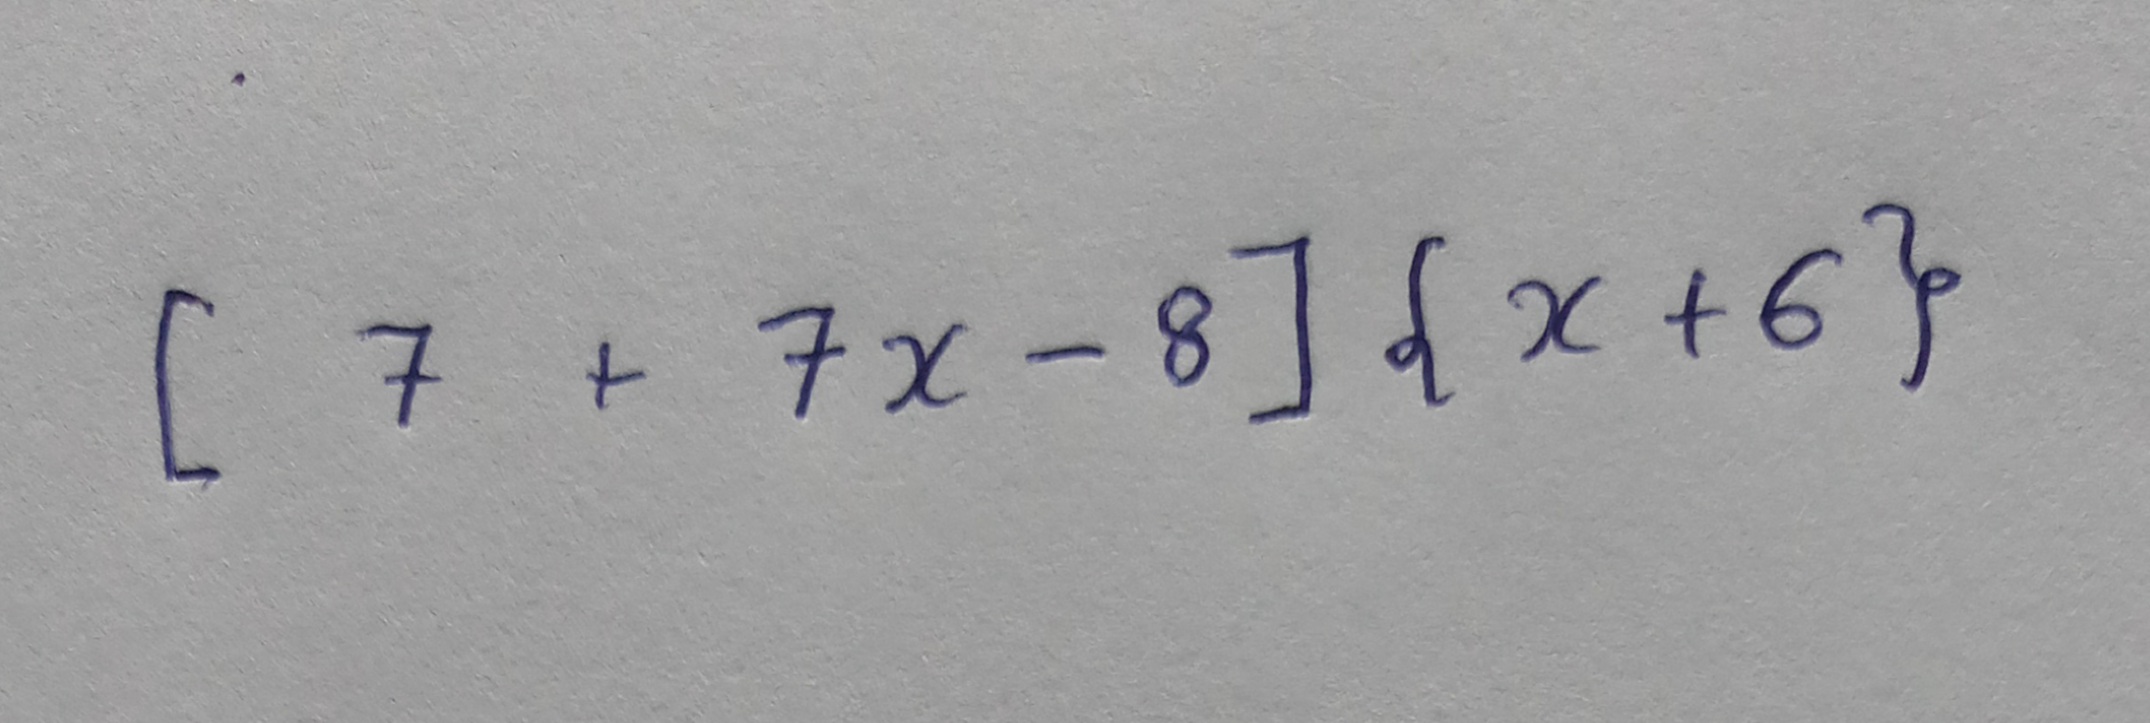 [ 7 + 7x - 8] {x + 6}